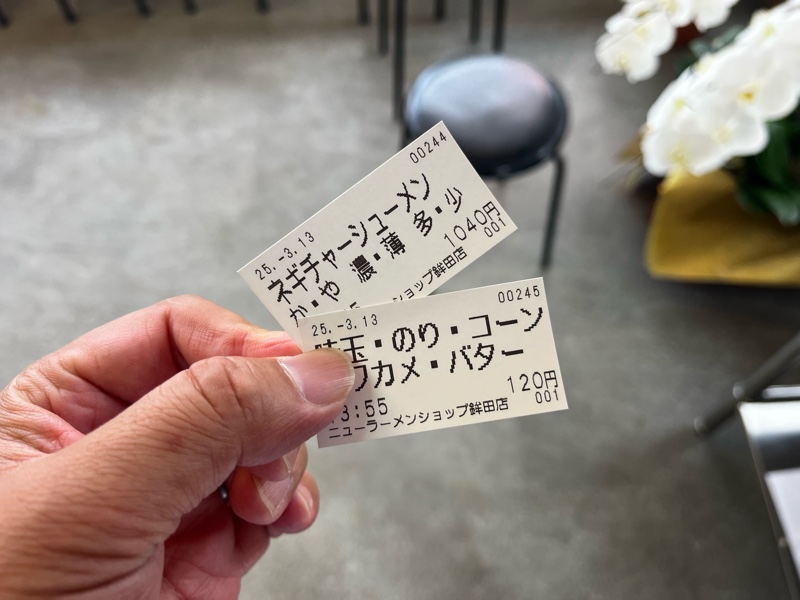 00244
25.-3.13
ネギチャーシューメン
か・や 濃・薄 多・少
1040円
001
ョップ鉾田店
00245
25.-3.13
玉・のり・コーン
カメ・バター
120円
3:55
001
ニューラーメンショップ鉾田店